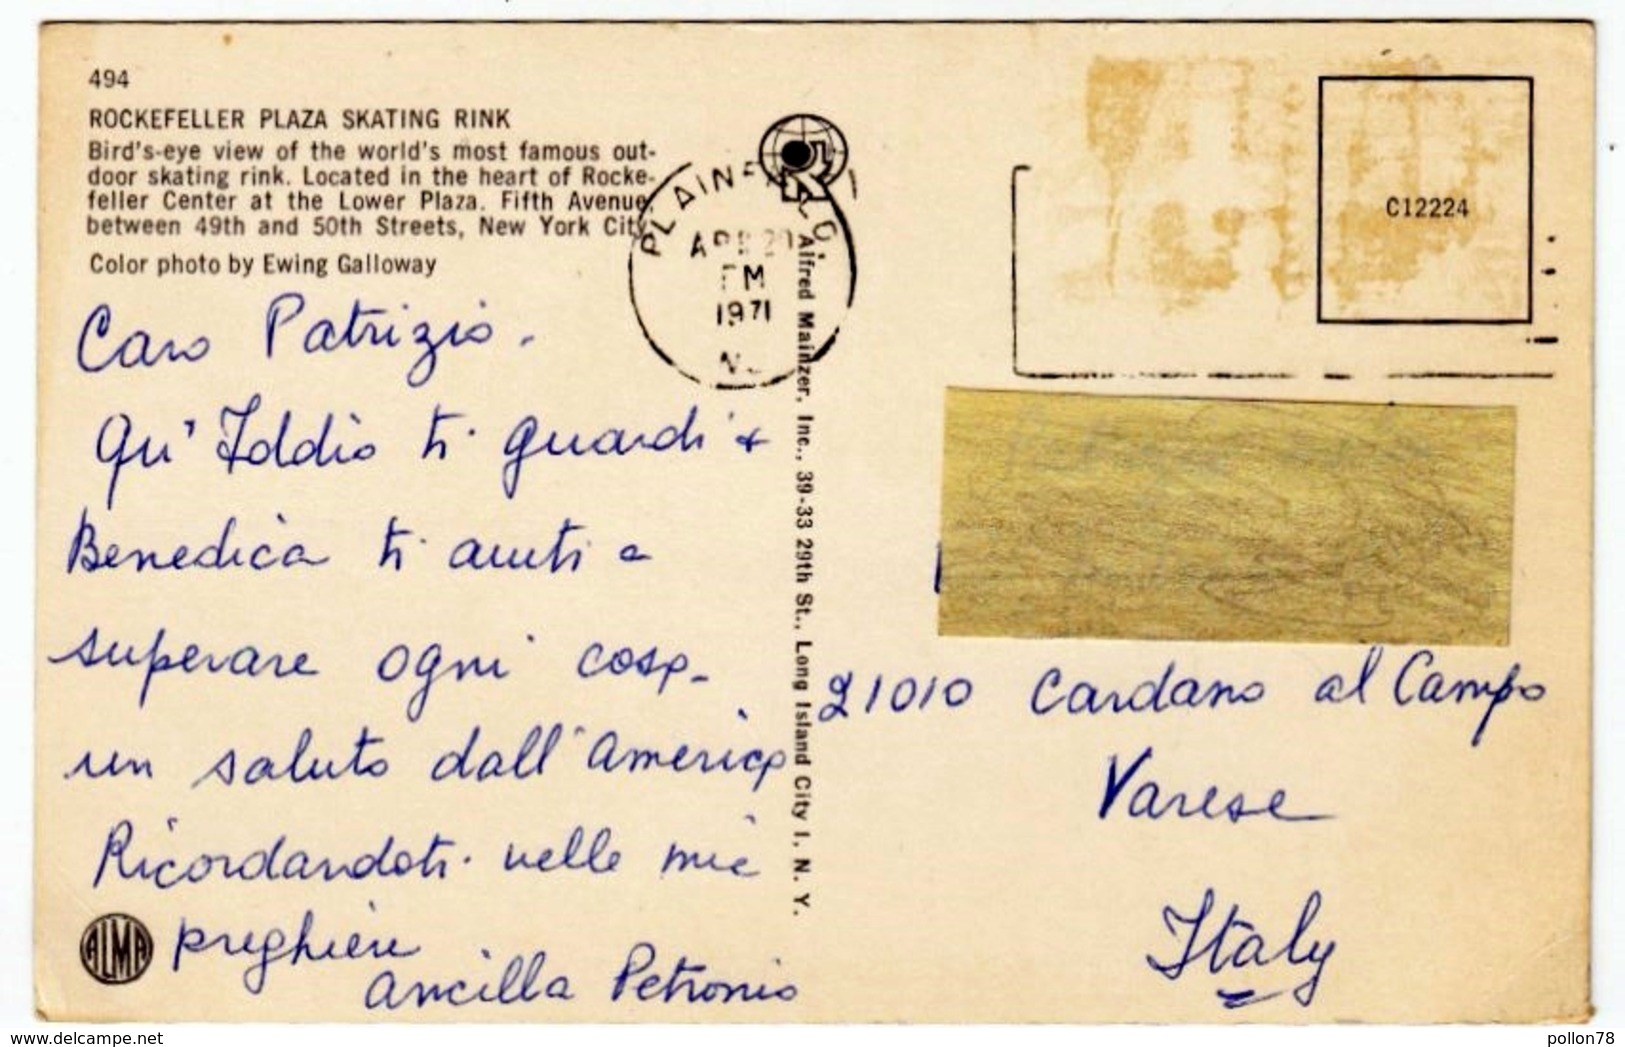 494
ROCKEFELLER PLAZA SKATING RINK
Bird's-eye view of the world's most famous out-
door skating rink. Located in the heart of Rocke-
feller Center at the Lower Plaza. Fifth Avenue,
between 49th and 50th Streets, New York City.
Color photo by Ewing Galloway
Caro Patrizio.
Qu' Iddio ti guardi e
Benedica ti aiuti a
superare ogni cosa.
un saluto dall'America
Ricordandoti nelle mie
preghiere
Ancilla Petronio
ALMA
PLAINFIELD
APR 20
PM
1971
NJ
Alfred Mainzer, Inc., 39-33 29th St., Long Island City 1, N. Y.
C12224
21010 Cardano al Campo
Varese
Italy
delcampe.net
pollon78